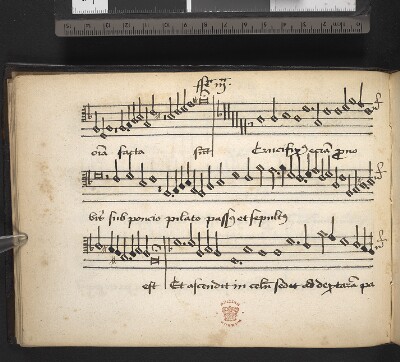 oīa facta sūt Crucifixꝰ eciā ꝓ no
bīs sub poncio pilato passꝰ et sepultꝰ
est Et ascendit in celū sedet ad dexterā pa